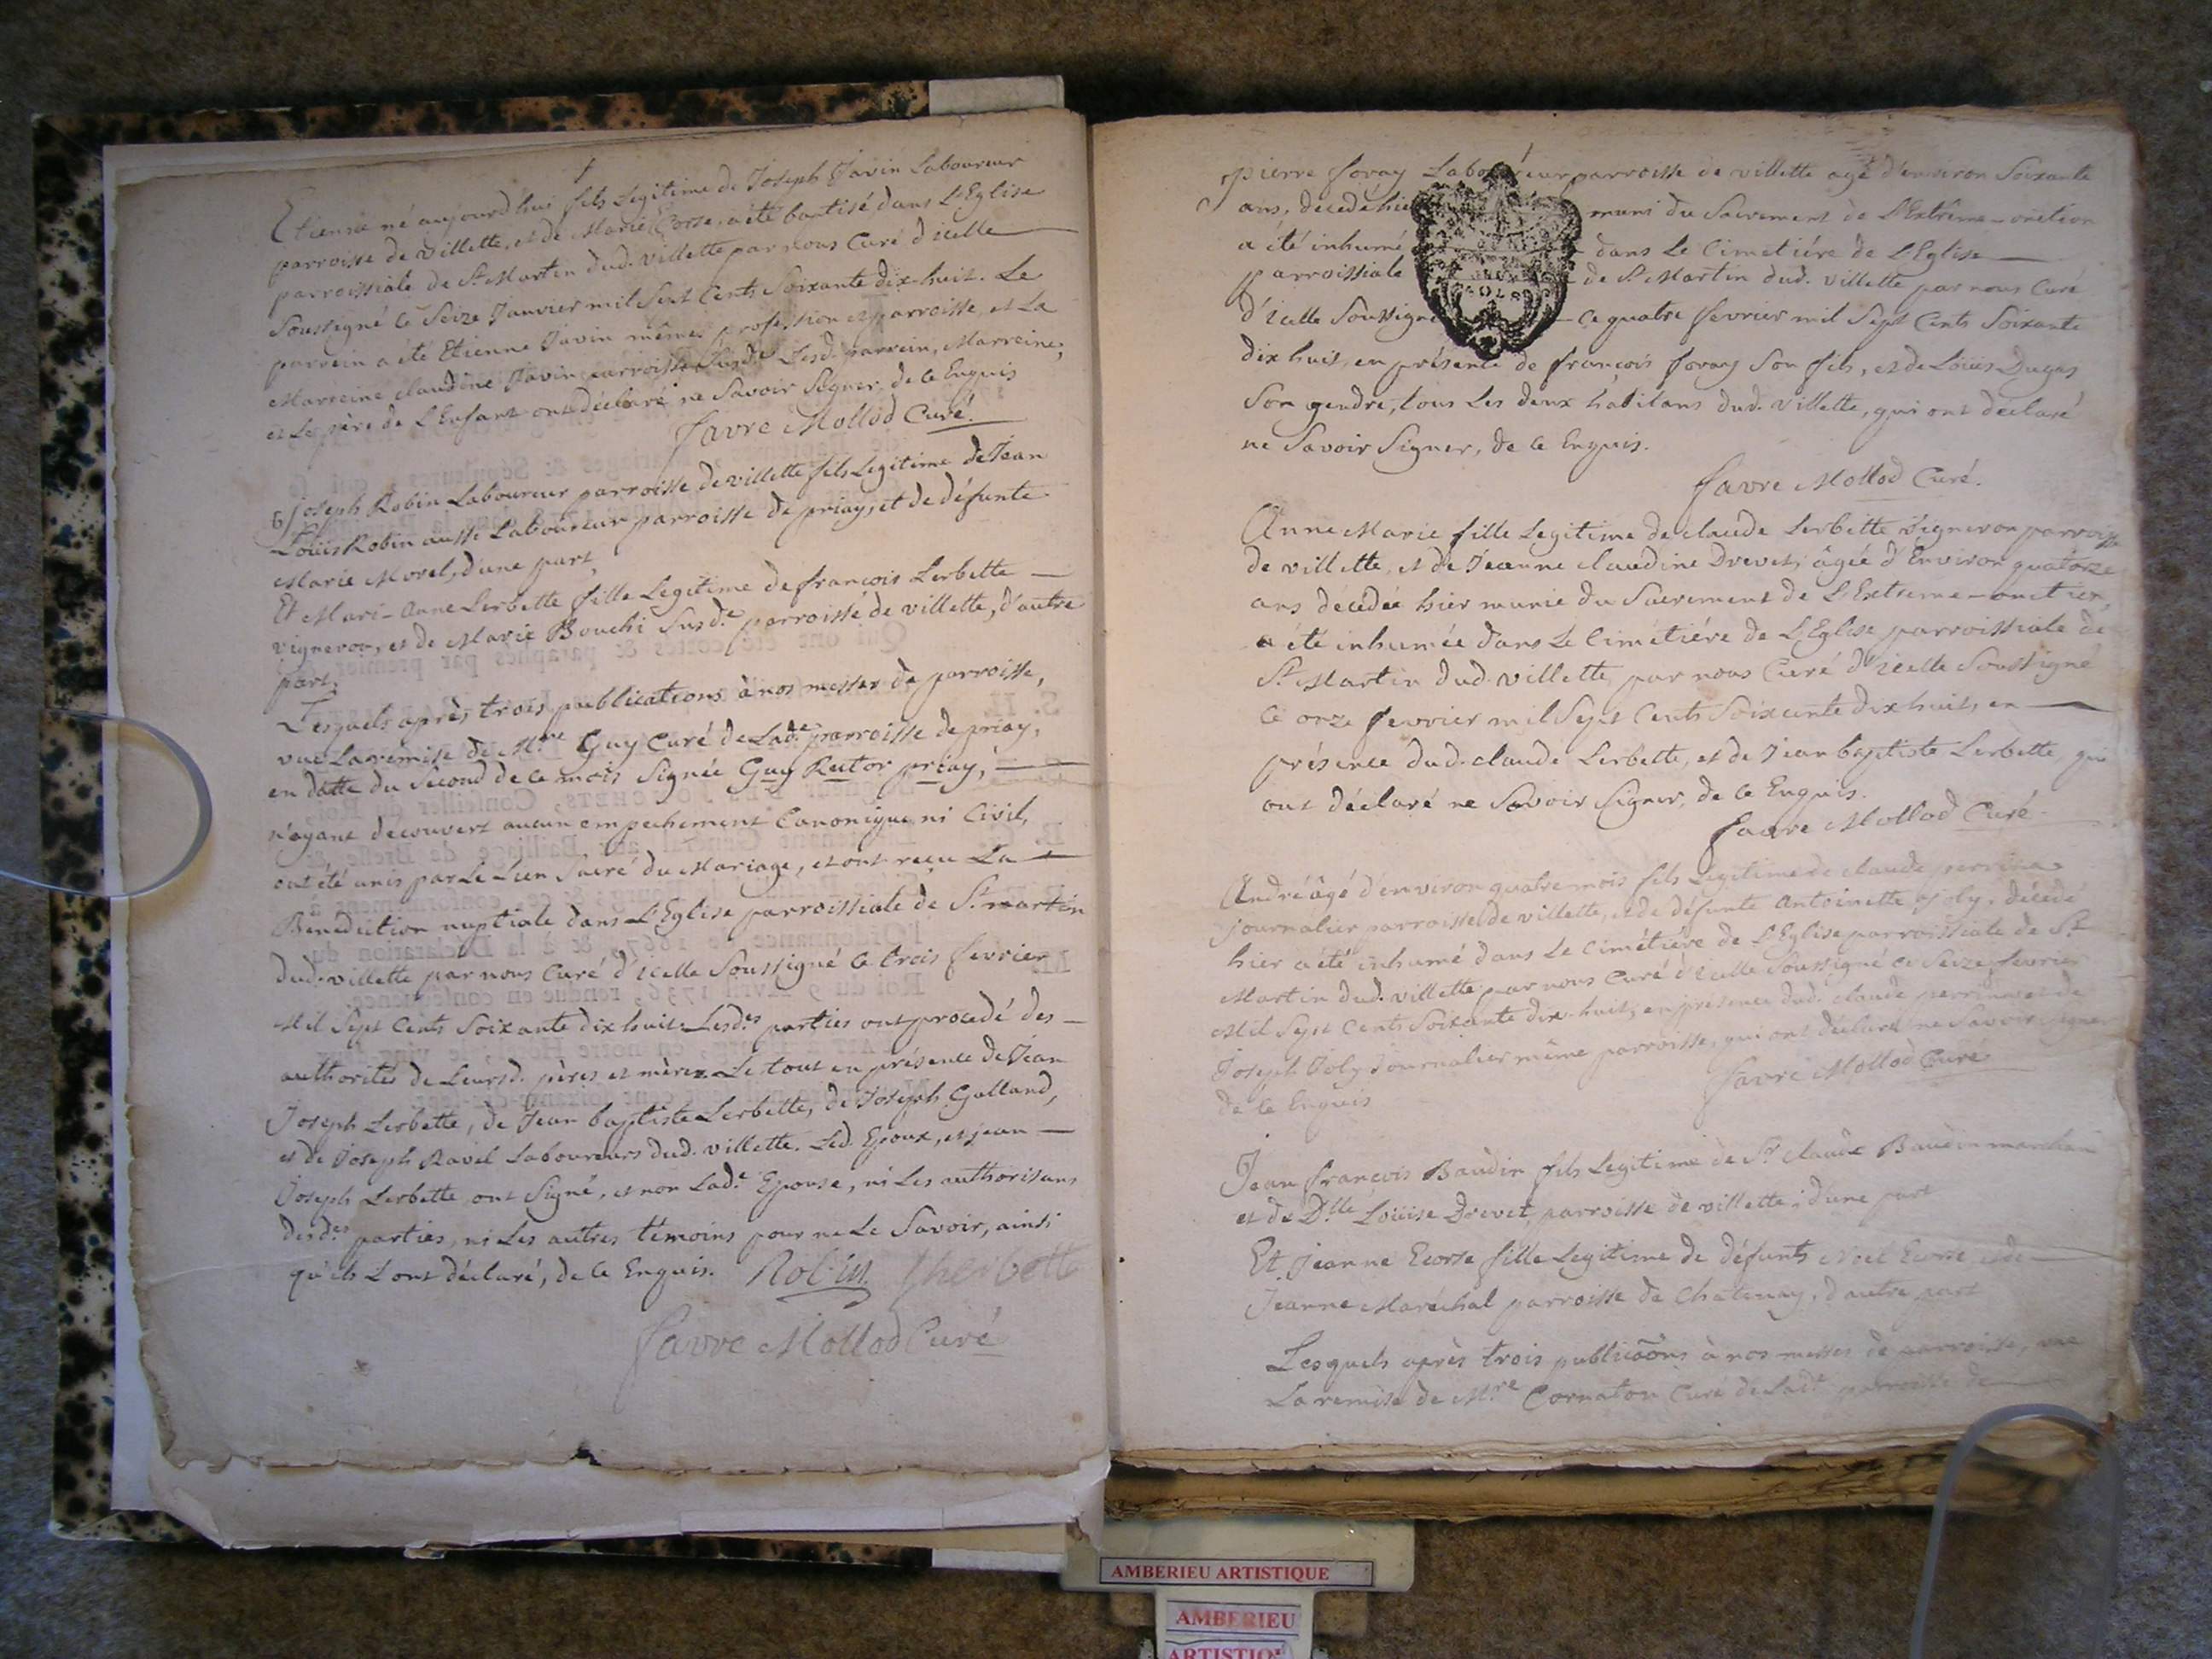 Etienne né aujourd'hui fils Legitime de Joseph Javin Laboureur
parroisse de villette, et de Marie Ecorse, a été baptisé dans L'Eglise
parroissiale de St. Martin dud. villette par nous Curé d'icelle
Soussigné ce Seize Janvier mil Sept Cents Soixante dix huit. Le
parrein a été Etienne Javin même profession et parroisse, et La
Marreine claudine Javin parroisse Susde. Lesd. parrein, Marreine,
et Le père de L'Enfant ont déclaré ne Savoir Signer de ce Enquis
favre Mollod Curé.
Joseph Robin Laboureur parroisse de villette fils Legitime de Jean
Louis Robin aussi Laboureur parroisse de priay, et de défunte
Marie Morel, d'une part,
Et Mari-Anne Lerbette fille Legitime de françois Lerbette
vigneron, et de Marie Bouchi Susde. parroisse de villette, d'autre
part.
Lesquels après trois publications à nos messes de parroisse,
vue La remise de Mre. Guy Curé de Lade. parroisse de priay,
en datte du Second de ce mois Signée Guy Rector priay,
n'ayant decouvert aucun empechement Canonique ni Civil,
ont été unis par Le Lien Sacré du Mariage, et ont reçu La
Benediction nuptiale dans L'Eglise parroissiale de St. martin
dud. villette par nous Curé d'icelle Soussigné ce trois fevrier
Mil Sept Cents Soixante dix huit. Lesdes. parties ont procedé des
authorités de Leursd. pères et mères. Le tout en présence de Jean
Joseph Lerbette, de Jean baptiste Lerbette, de Joseph Galland,
et de Joseph Ravel Laboureurs dud. villette. Led. Epoux, et jean
Joseph Lerbette ont Signé, et non Lade. Epouse, ni Les authorisans
desdes. parties, ni Les autres témoins pour ne Le Savoir, ainsi
qu'ils L'ont déclaré, de ce Enquis. Robin Lherbette
favre Mollod Curé
pierre foray Laboureur parroisse de villette agé d'environ Soixante
ans, decedé hier muni du Sacrement de L'Extrême-onction
a été inhumé dans Le Cimetiére de L'Eglise
parroissiale de St. Martin dud. villette par nous Curé
d'icelle Soussigné ce quatre fevrier mil Sept Cents Soixante
dix huit, en présence de françois foray Son fils, et de Louis Dugas
Son gendre, tous Les deux habitans dud. villette, qui ont déclaré
ne Savoir Signer, de ce Enquis.
favre Mollod Curé.
Anne Marie fille Legitime de claude Lerbette vigneron parroisse
de villette, et de Jeanne claudine Drevet, âgée d'Environ quatorze
ans decedée hier munie du Sacrement de L'Extreme-onction,
a été inhumée dans Le Cimétiére de L'Eglise parroissiale de
St. Martin dud. villette par nous Curé d'icelle Soussigné
ce onze fevrier mil Sept Cents Soixante dix huit, en
présence dud. claude Lerbette, et de Jean baptiste Lerbette qui
ont déclaré ne Savoir Signer, de ce Enquis.
favre Mollod Curé
André âgé d'environ quatre mois fils Legitime de claude perrin
journalier parroisse de villette, et de défunte Antoinette joly, décédé
hier a été inhumé dans Le Cimétiére de L'Eglise parroissiale de St.
Martin dud. villette par nous Curé d'icelle Soussigné ce Seize fevrier
Mil Sept Cents Soixante dix-huit, en présence dud. claude et de
Joseph Joly Journalier même parroisse, qui ont déclaré ne Savoir Signer
de ce Enquis
favre Mollod Curé
Jean françois Baudin fils Legitime de Sr. claude Baudin marchand
et de Dlle. Louise Drevet, parroisse de villette, d'une part
Et Jeanne Ecorse fille Legitime de défunts Noël Ecorse et de
Jeanne Maréchal parroisse de Chatenay, d'autre part
Lesquels après trois publicãõns à nos messes de parroisse, vue
La remise de Mre. Cornaton Curé de Lade. parroisse de
AMBERIEU ARTISTIQUE
AMBERIEU
ARTISTIQ